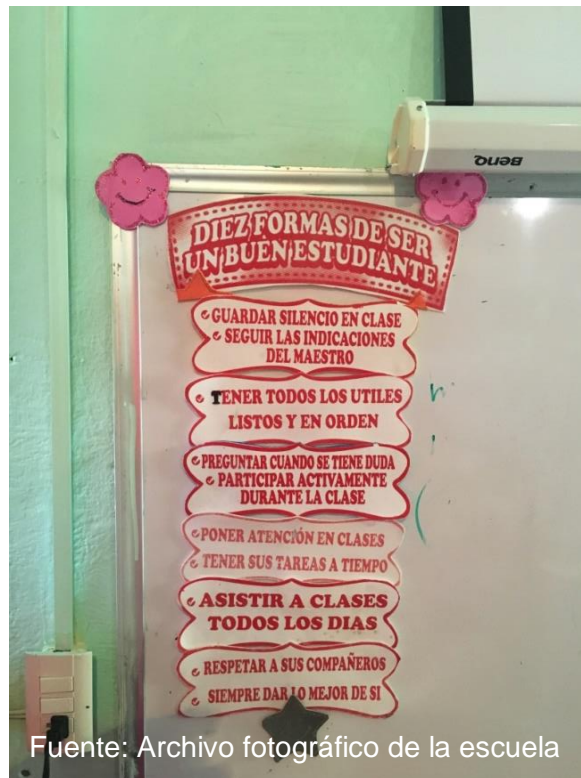 BenQ
DIEZ FORMAS DE SER
UN BUEN ESTUDIANTE
GUARDAR SILENCIO EN CLASE
SEGUIR LAS INDICACIONES
DEL MAESTRO
TENER TODOS LOS UTILES
LISTOS Y EN ORDEN
PREGUNTAR CUANDO SE TIENE DUDA
PARTICIPAR ACTIVAMENTE
DURANTE LA CLASE
PONER ATENCIÓN EN CLASES
TENER SUS TAREAS A TIEMPO
ASISTIR A CLASES
TODOS LOS DIAS
RESPETAR A SUS COMPAÑEROS
SIEMPRE DAR LO MEJOR DE SI
Fuente: Archivo fotográfico de la escuela